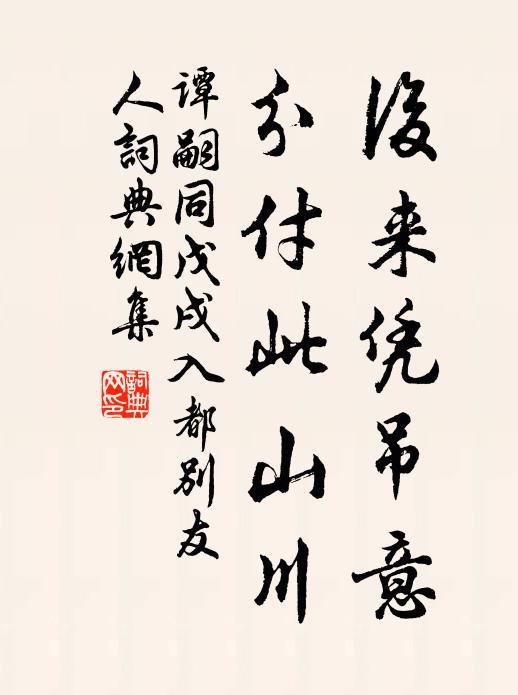 後来凭吊意
分付此山川
谭嗣同戊戌入都别友
人詞典網集
詞典
网印